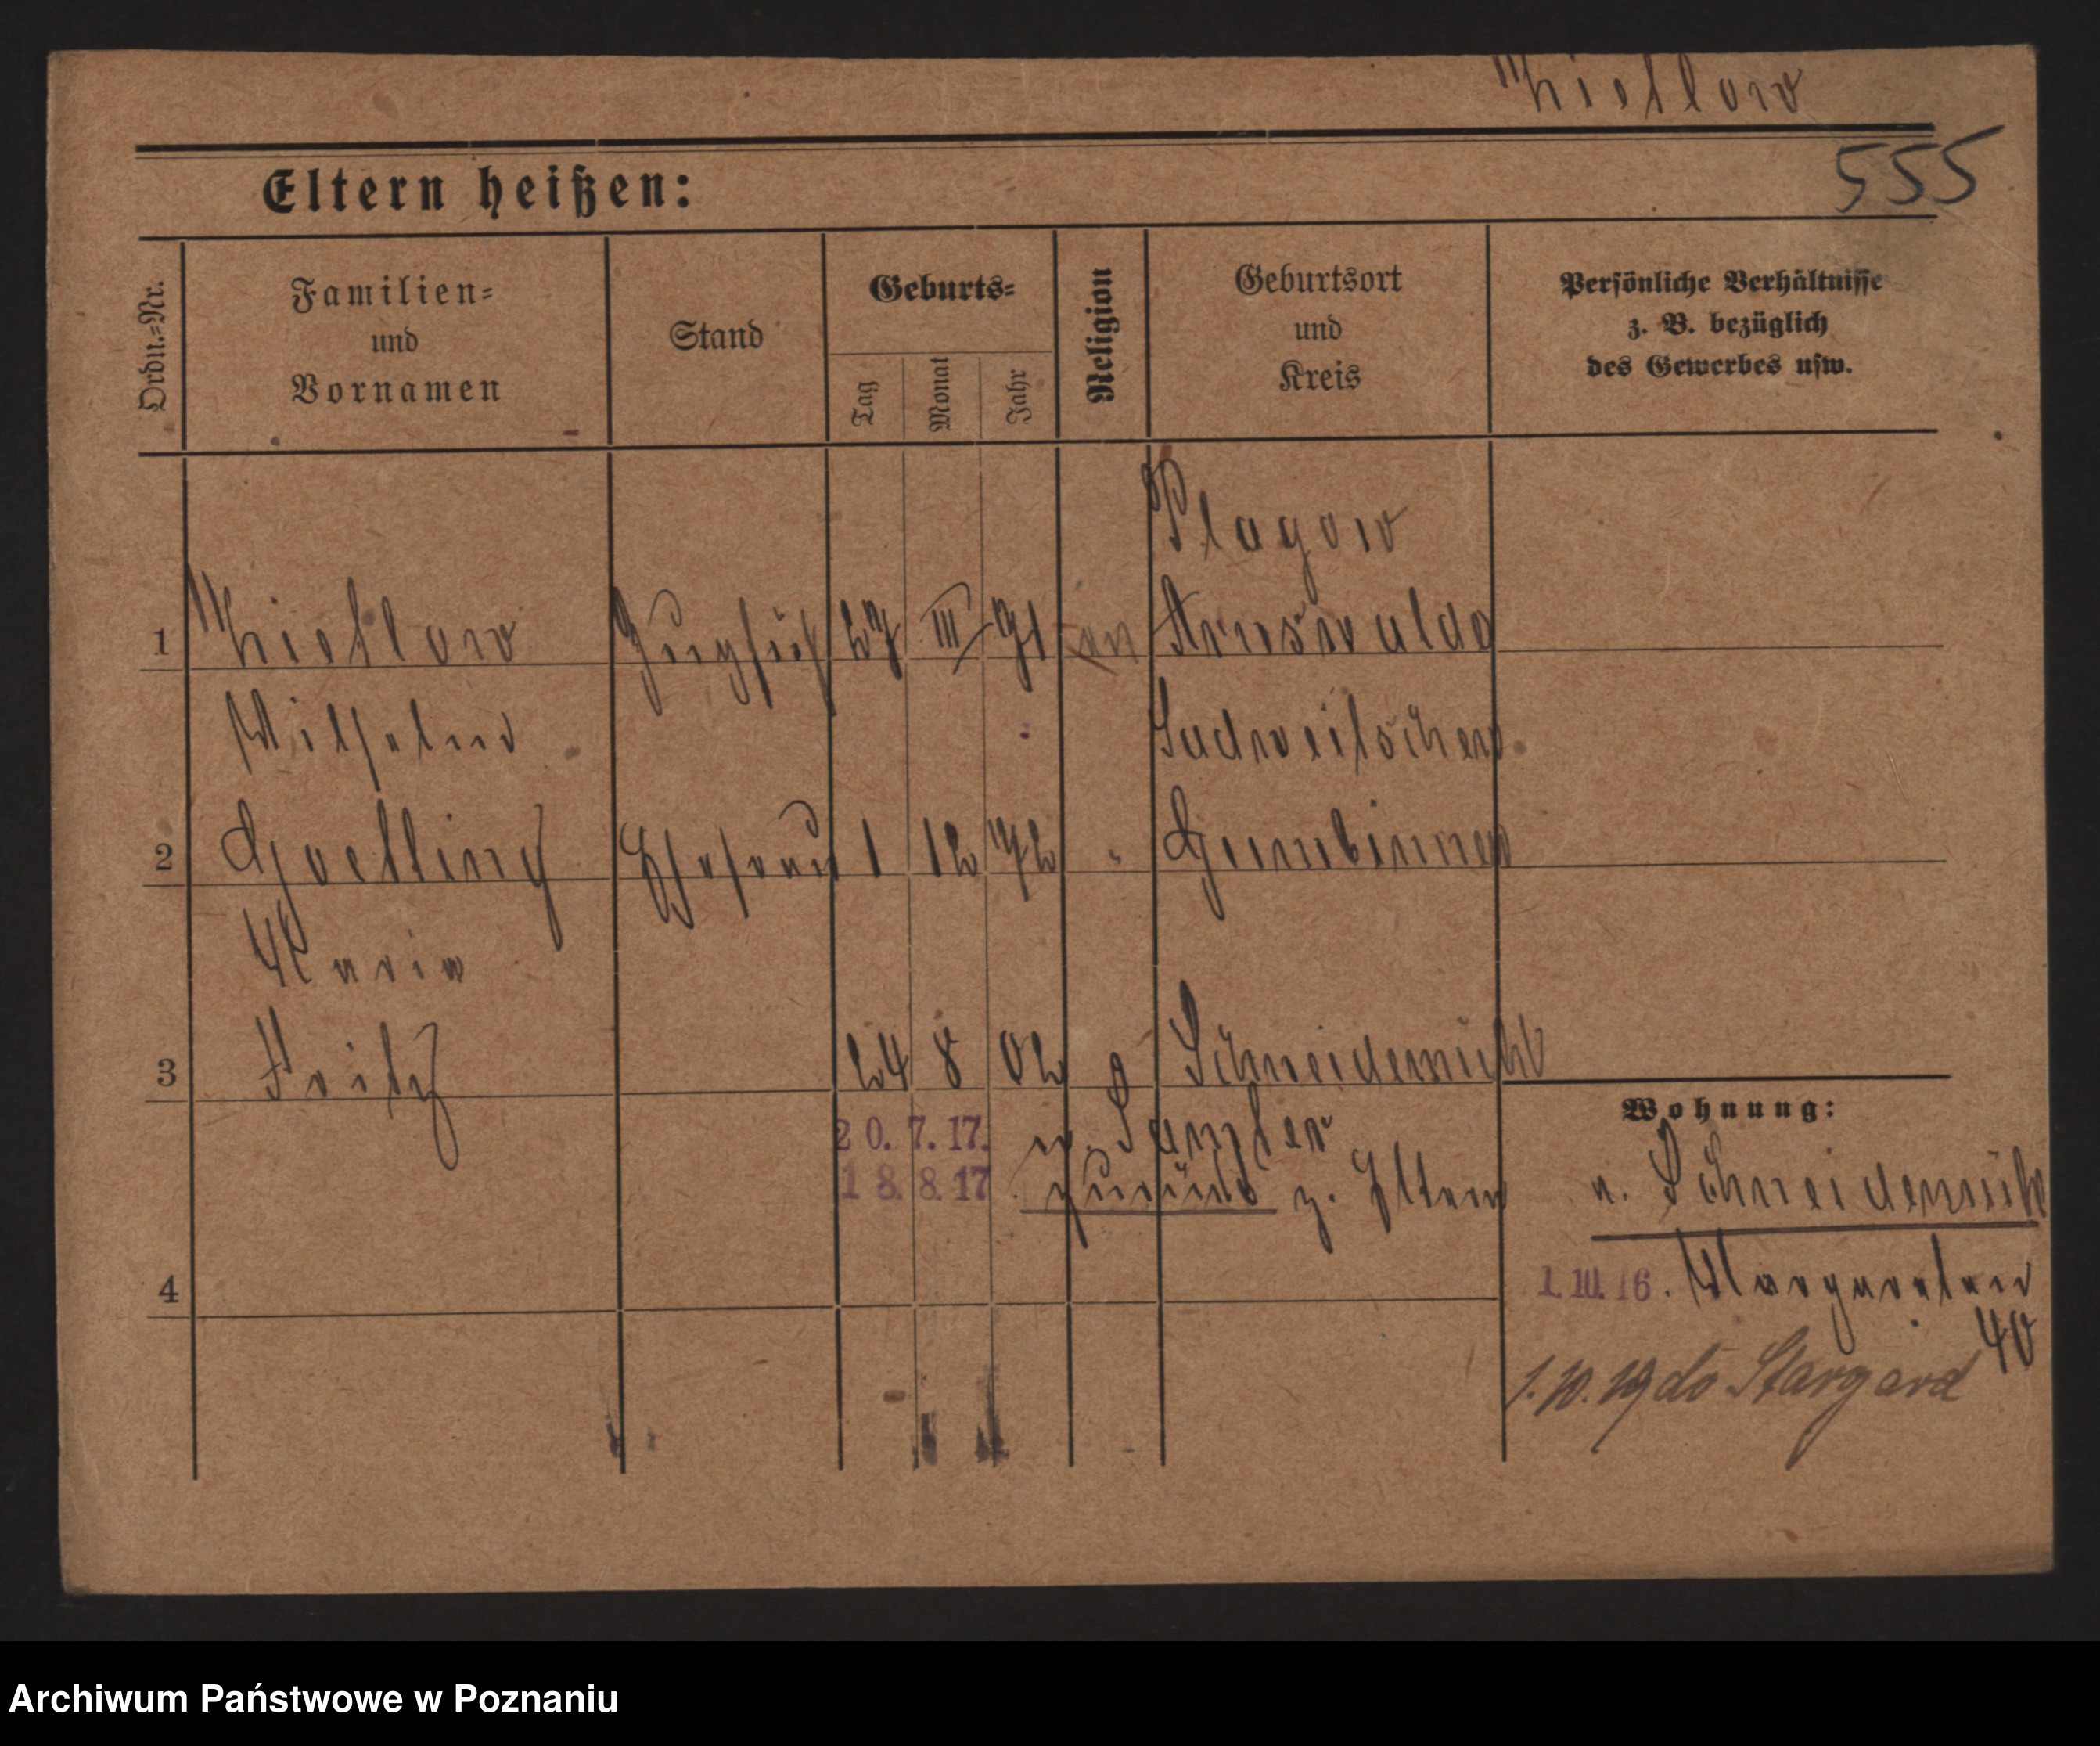 Thiellow
555
Eltern heißen:
Ordn.=Nr.
Familien=
und
Vornamen
Stand
Geburts=
Tag
Monat
Jahr
Religion
Geburtsort
und
Kreis
Persönliche Verhältnisse
z. B. bezüglich
des Gewerbes usw.
Plagow
1 Zugfüh 27 III 71 ev Arnswalde
Wilhelm Sadweitschen
2 Goetting Ehefrau 1 12 72 " Gumbinnen
Maria
3 Fritz 24 8 02 Schneidemühl
Wohnung:
20. 7. 17.
18. 8. 17 zurück z. Eltern
n. Schneidemühl
4
1. 10. 16.
40
1. 10. 19 do Stargard
Archiwum Państwowe w Poznaniu